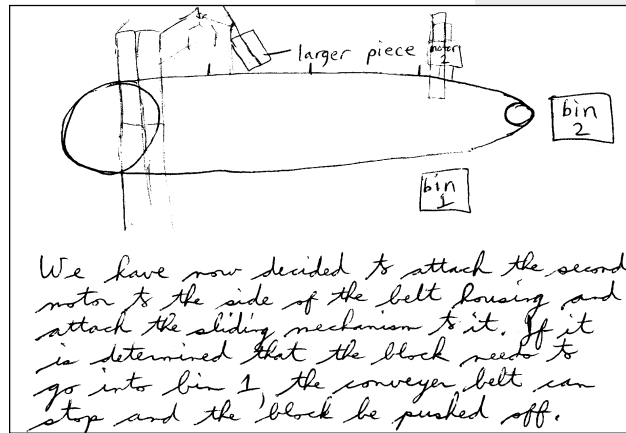 larger piece
motor
2
bin
2
bin
1
We have now decided to attach the second
motor to the side of the belt housing and
attach the sliding mechanism to it. If it
is determined that the block needs to
go into bin 1, the conveyer belt can
stop and the block be pushed off.